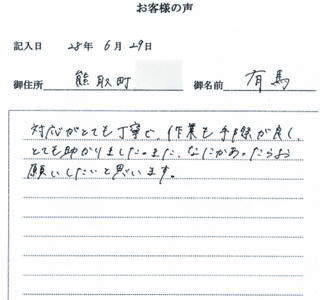 お客様の声
記入日 28年 6月 29日
御住所 熊取町 御名前 有馬
対応がとても丁寧で、作業も手際が良く、
とても助かりました。また、なにかあったらお
願いしたいと思います。